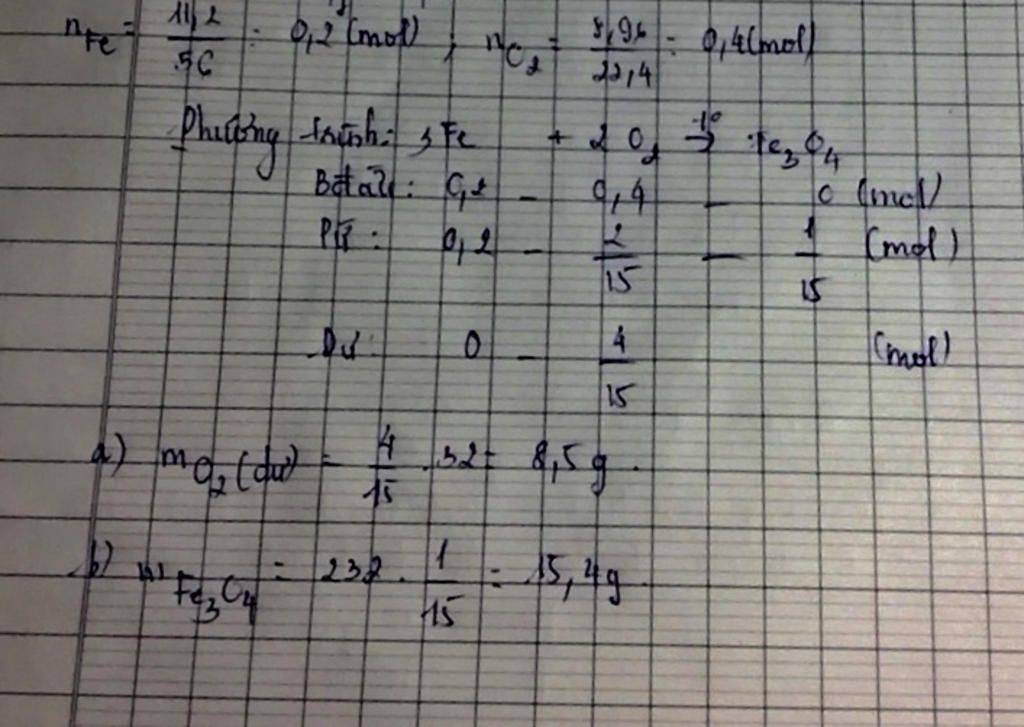 nFe = 11,2/56 = 0,2 (mol) ; nO2 = 8,96/22,4 = 0,4 (mol)
Phương trình: 3Fe + 2O2 t°→ Fe3O4
Bđầu: 0,2 - 0,4 - 0 (mol)
PƯ: 0,2 - 2/15 - 1/15 (mol)
Dư: 0 - 4/15 (mol)
a) mO2 (dư) = 4/15 . 32 = 8,5 g.
b) mFe3O4 = 232 . 1/15 = 15,4g